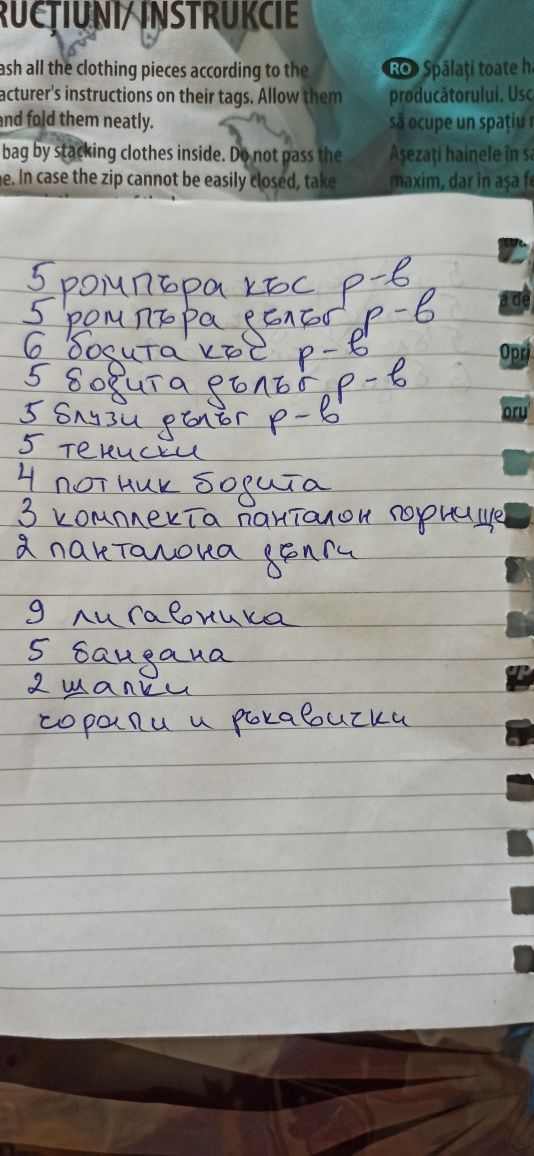 RUCȚIUNI/ INSTRUKCIE
ash all the clothing pieces according to the
acturer's instructions on their tags. Allow them
and fold them neatly.
bag by stacking clothes inside. Do not pass the
e. In case the zip cannot be easily closed, take
RO Spălați toate h
producătorului. Usc
să ocupe un spațiu
Așezați hainele în s
maxim, dar în așa fe
5 ромпъра къс р-в
5 ромпъра дълъг р-в
6 бодита къс р-в
5 бодита дълъг р-в
5 блузи дълъг р-в
5 тениски
4 потник бодита
3 комплекта панталон горнище
2 панталона дълги
9 лигавника
5 бандана
2 шапки
чорапи и ръкавички
a de
Opri
oru